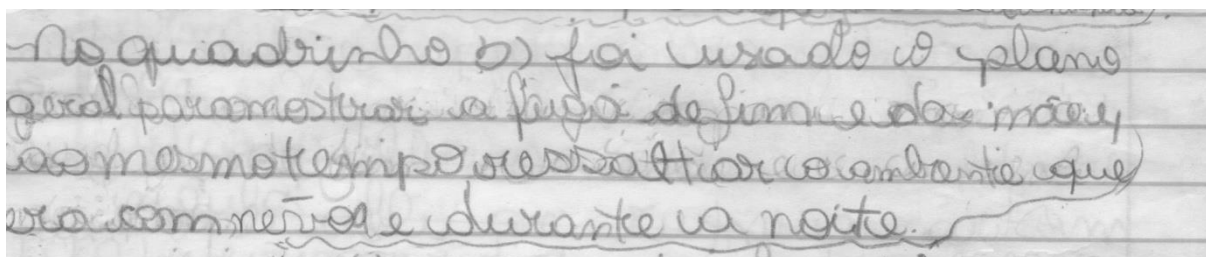 No quadrinho b) foi usado o plano
geral para mostrar a fuga de Jimm e da mãe,
ao mesmo tempo ressaltar o ambente que
era com nevoa e durante a noite.